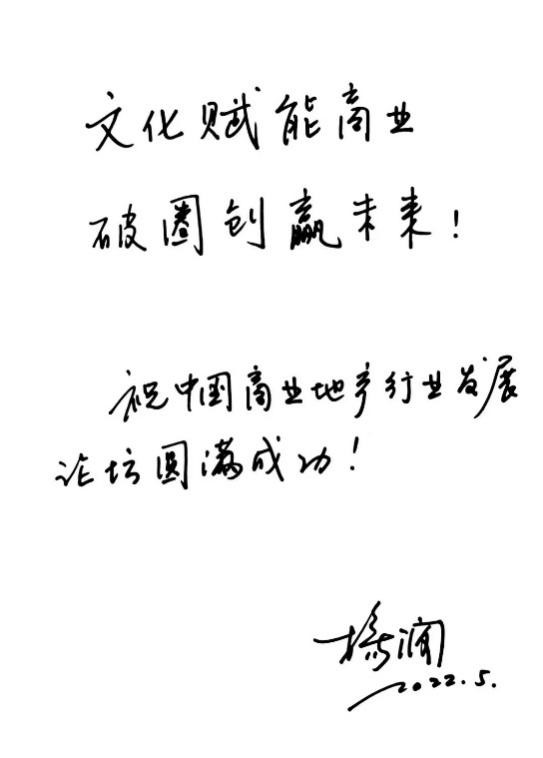 文化赋能商业
破圈创赢未来！
祝中国商业地产行业发展
论坛圆满成功！
杨润
2022.5.